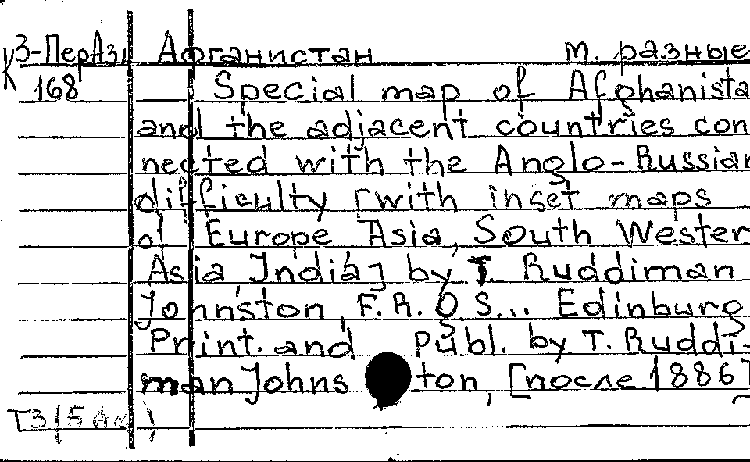 К3-ПерАз Афганистан м. разные
168 Special map of Afghanista
and the adjacent countries con
nected with the Anglo-Russian
difficulty [with inset maps
of Europe Asia, South Wester
Asia, India] by T. Ruddiman
Johnston, F.R.G.S... Edinburg
Print. and Publ. by T. Ruddi-
man Johns ton, [после 1886]